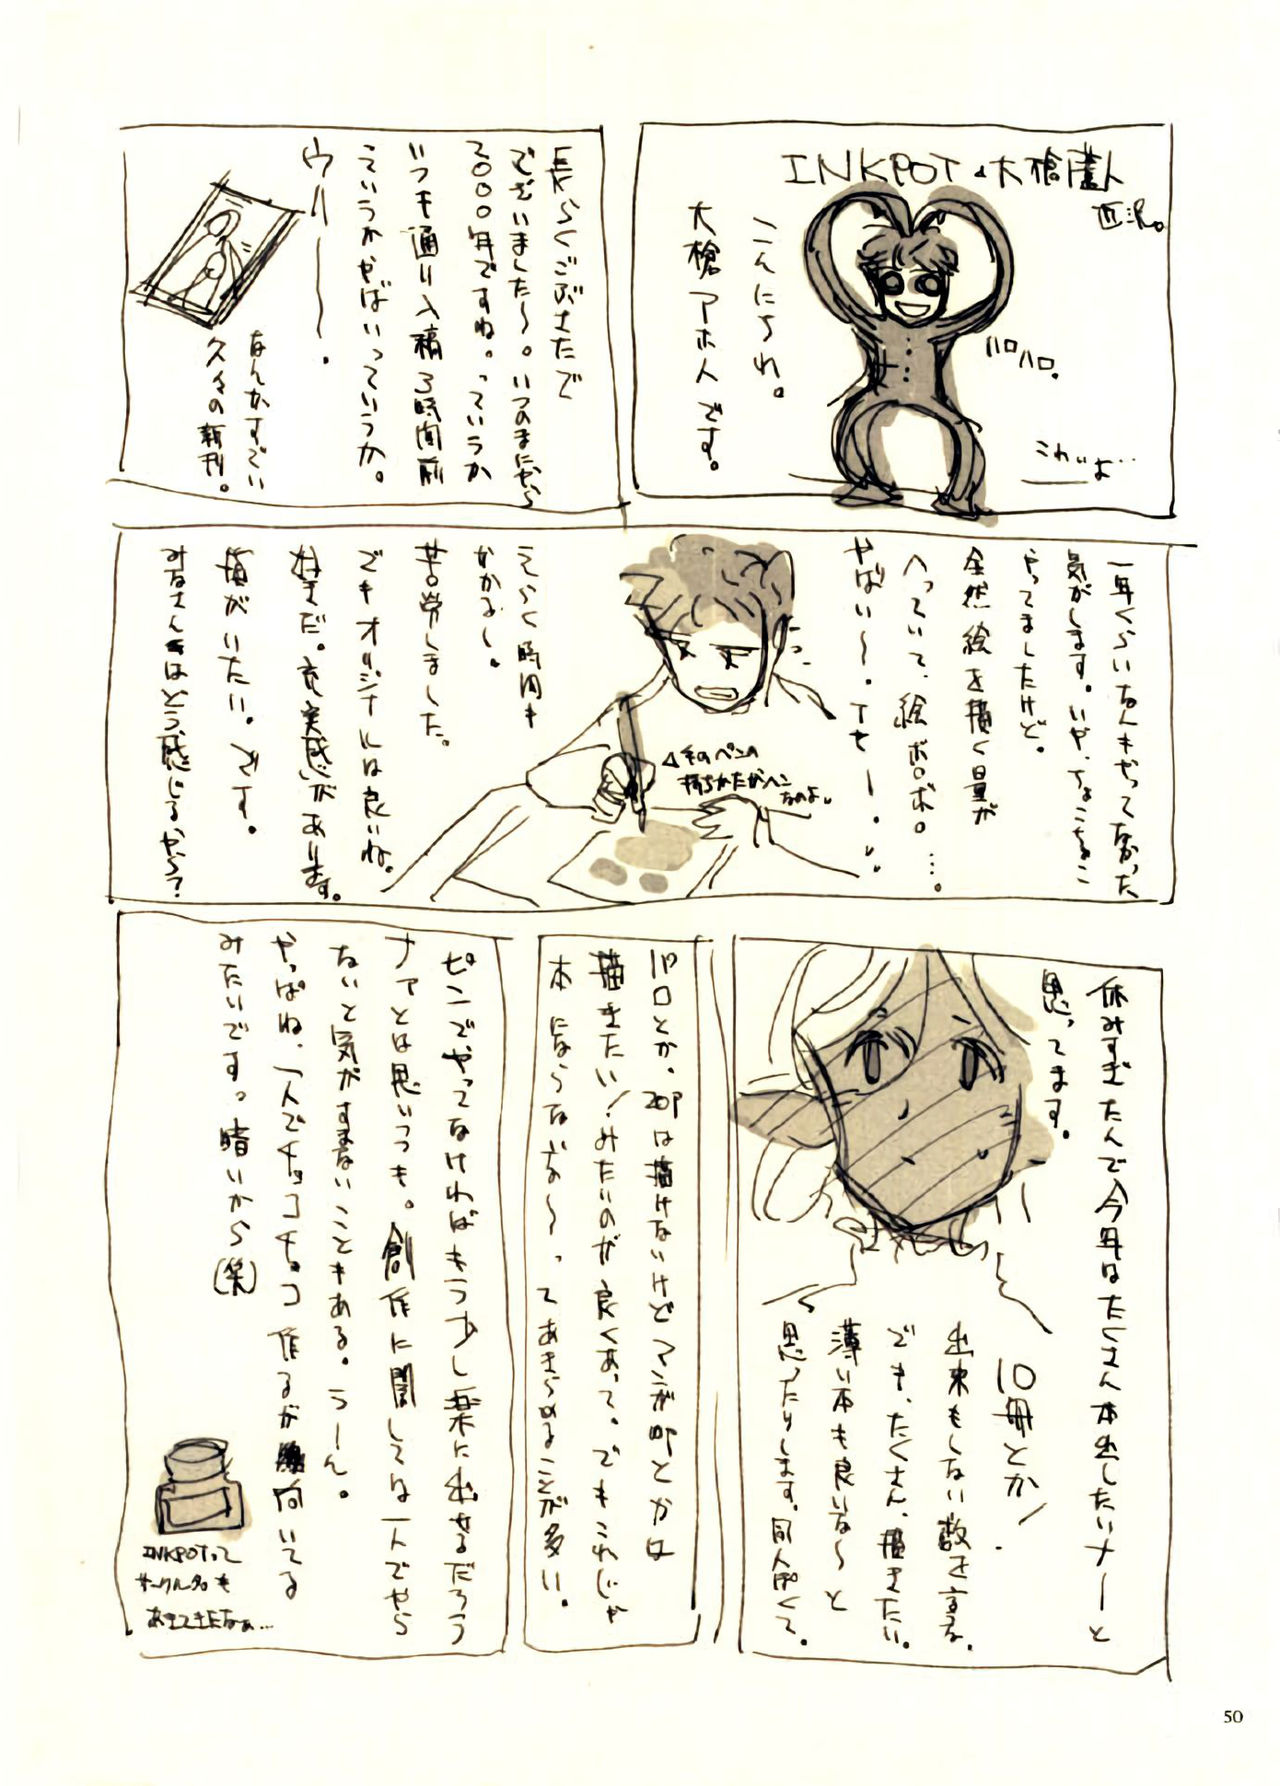 INKPOT & 大槍葦人
こんにちわ。
大槍アホ人です。
ハロハロ。
これぃよ…
長らくごぶさたで
ございました〜。いつのまにやら
2000年ですね。っていうか
いつも通り入稿3時間前
っていうかやばいっていうか。
ウリー〜〜。
なんかすでい
久々の新刊。
一年くらいなんもやってなかった
気がします。いや、ちょこちょこ
やってましたけど。
全然絵を描く量が
へっていて、絵ボロボロ。…。
やばい〜。
手のペンの
持ちかたがヘン
なのよ。
えらく時間も
かかるし。
苦労しました。
でもオリジナルは良いね。
好きだ。充実感があります。
頭がいたい。です。
みなさんはどう感じるかな？
休みすぎたんで今年はたくさん本出したいナーと
思ってます。
10冊とか！
出来もしない数を言うな。
でも、たくさん、描きたい。
薄い本も良いな〜と
思ったりします。同人ぽくて。
パロとか、20Pは描けないけどマンガ8Pとかは
描きたい！みたいのが良くあって。でもこれじゃ
本にならないな〜ってあきらめることが多い。
ピンでやってなければもう少し楽に出せるだろう
ナァとは思いつつも。創作に関しては一人でやら
ないと気がすまないこともある。うーん。
やっぱね、一人でチョコチョコ作るが向いてる
みたいです。暗いから(笑)
INKPOTって
サークル名も
あきてきたなぁ…
50